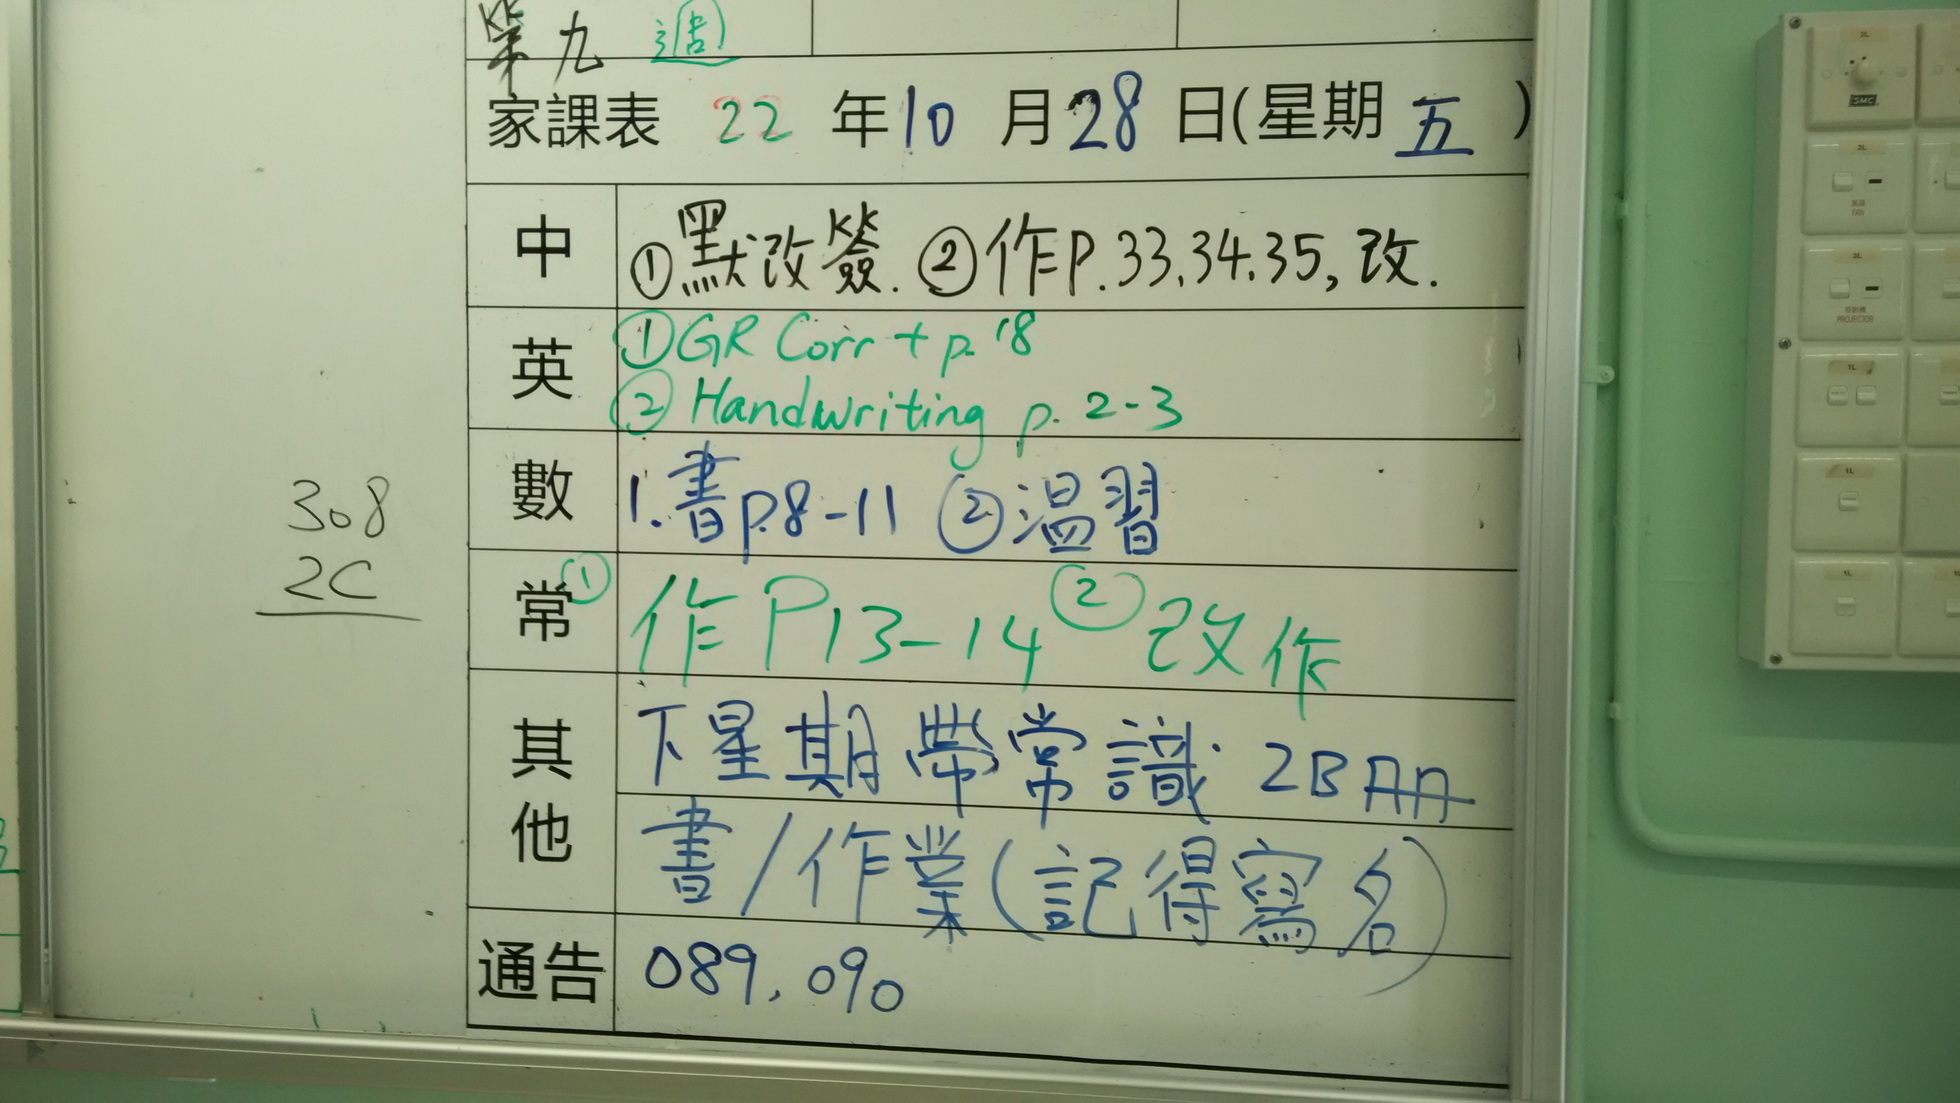 第九週
家課表 22 年 10 月 28 日(星期 五 )
中 ①默改簽. ②作P.33.34.35, 改.
英 ①GR Corr + p. 18
② Handwriting p. 2-3
數 1.書p.8-11 ②温習
常 ①作P13-14 ②改作
其他 下星期帶常識 2B
書/作業(記得寫名)
通告 089, 090
308
2C
SMC
PROJECTOR
2L
2L
3L
1L
1L
1L
1L